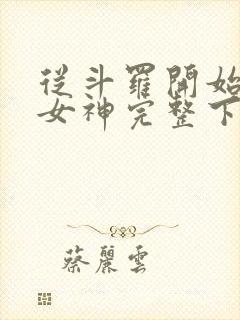 從斗羅開始
女神完整下
蔡麗雲